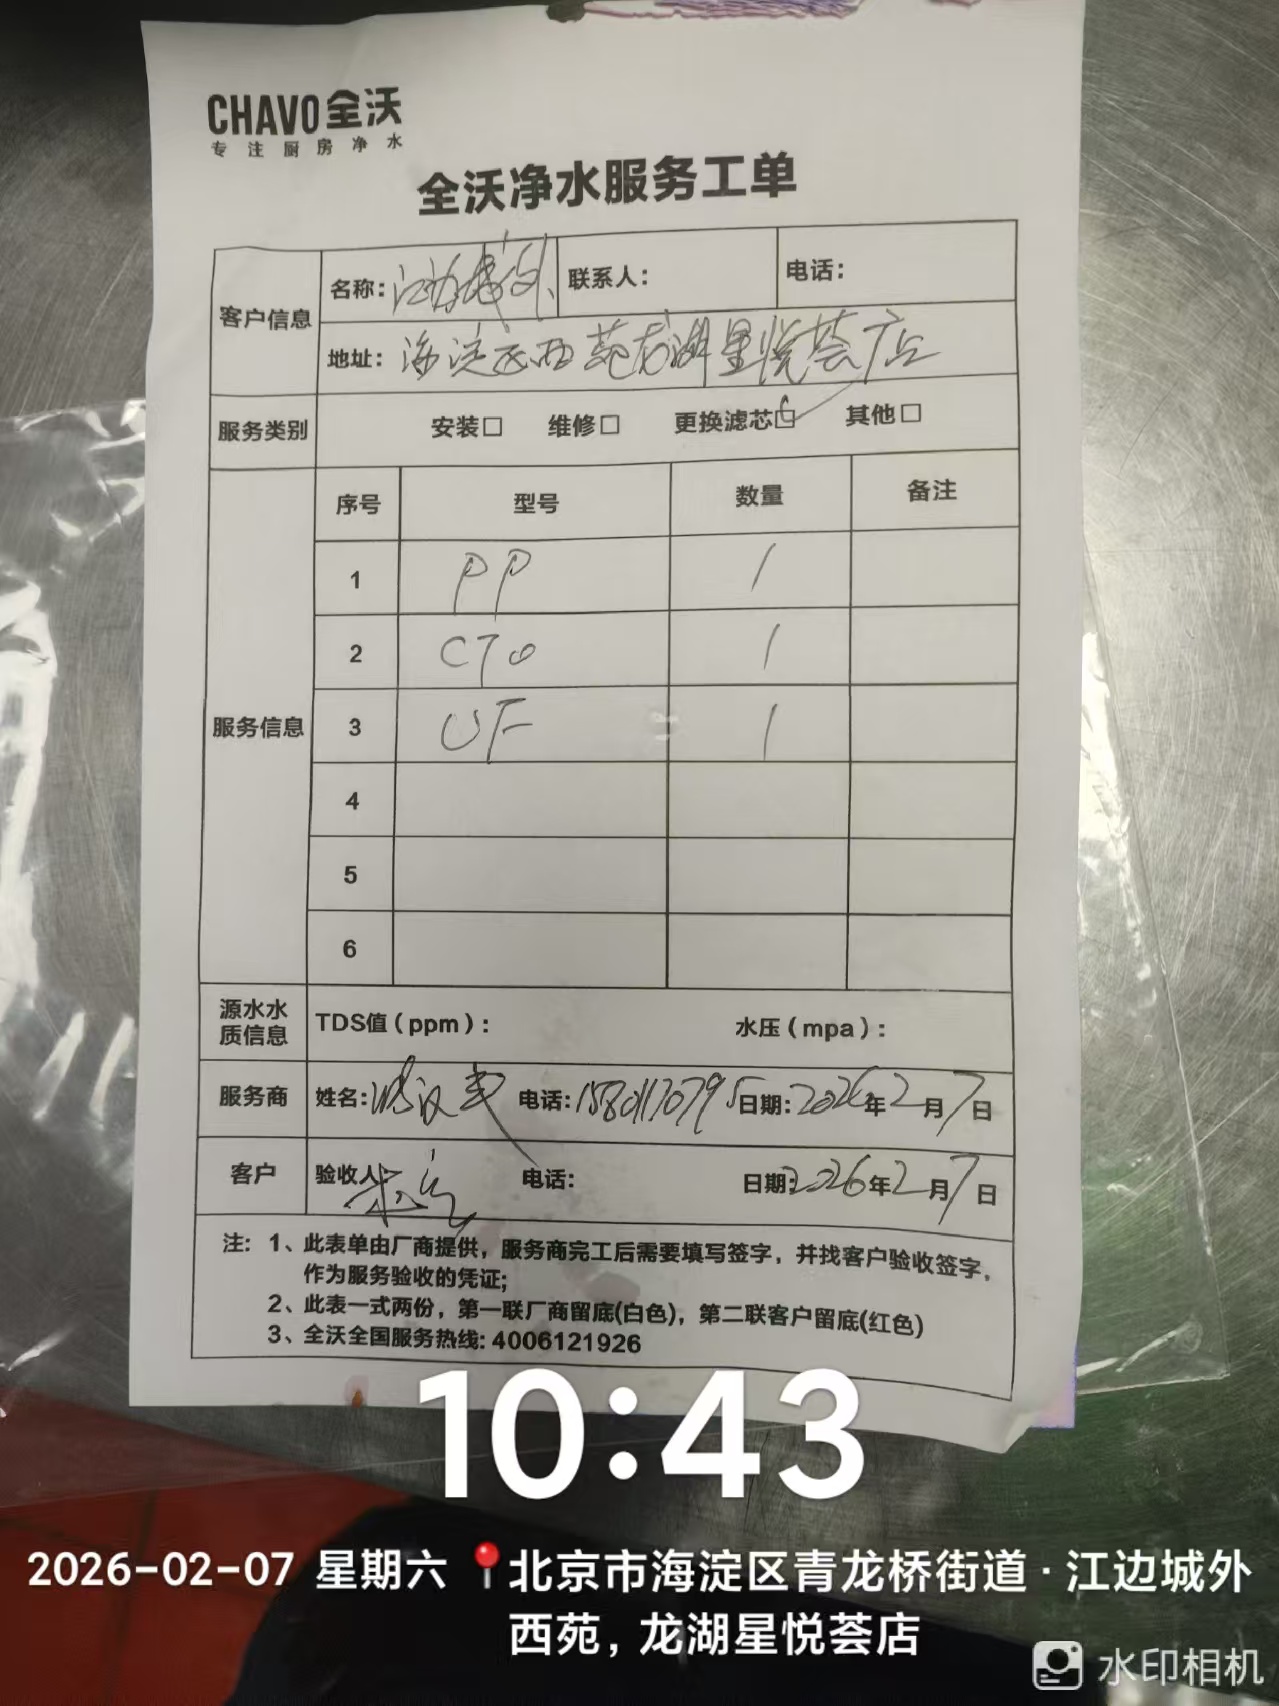 CHAVO 全沃
专注厨房净水
全沃净水服务工单
客户信息 名称：江边城外 联系人： 电话：
地址：海淀区西苑龙湖星悦荟店
服务类别 安装□ 维修□ 更换滤芯☑ 其他□
服务信息 序号 型号 数量 备注
1 PP 1
2 CTO 1
3 UF 1
4
5
6
源水水质信息 TDS值（ppm）： 水压（mpa）：
服务商 姓名： 电话：15801170795 日期：2026年2月7日
客户 验收人： 电话： 日期：2026年2月7日
注：1、此表单由厂商提供，服务商完工后需要填写签字，并找客户验收签字，
作为服务验收的凭证；
2、此表一式两份，第一联厂商留底(白色)，第二联客户留底(红色)
3、全沃全国服务热线：4006121926
10:43
2026-02-07 星期六 北京市海淀区青龙桥街道·江边城外
西苑，龙湖星悦荟店
水印相机